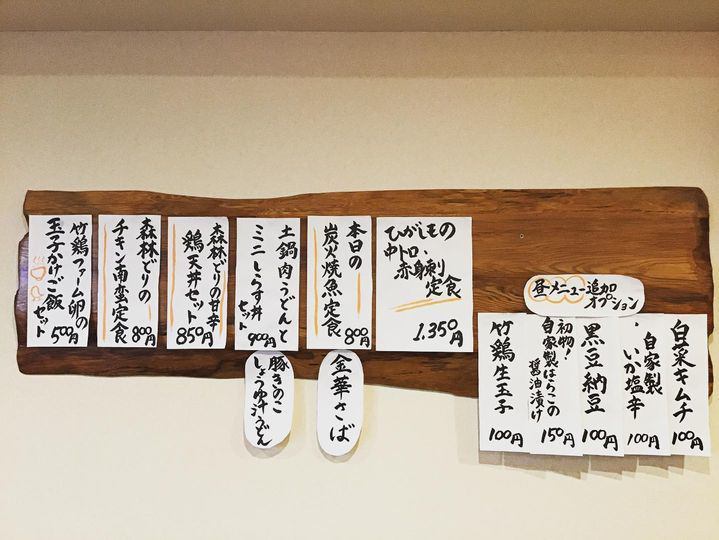 ひがしもの
中トロ、
赤身刺
定食
1,350円
本日の
炭火焼魚定食
800円
金華さば
土鍋肉うどんと
ミニしらす丼
セット
900円
豚きのこ
しょうゆ汁うどん
森林どりの甘辛
鶏天丼セット
850円
森林どりの
チキン南蛮定食
800円
竹鶏ファーム卵の
玉子かけご飯
セット
500円
昼メニュー追加
オプション
白菜キムチ
100円
自家製
いか塩辛
100円
黒豆納豆
100円
初物!
自家製はらこの
醤油漬け
150円
竹鶏生玉子
100円